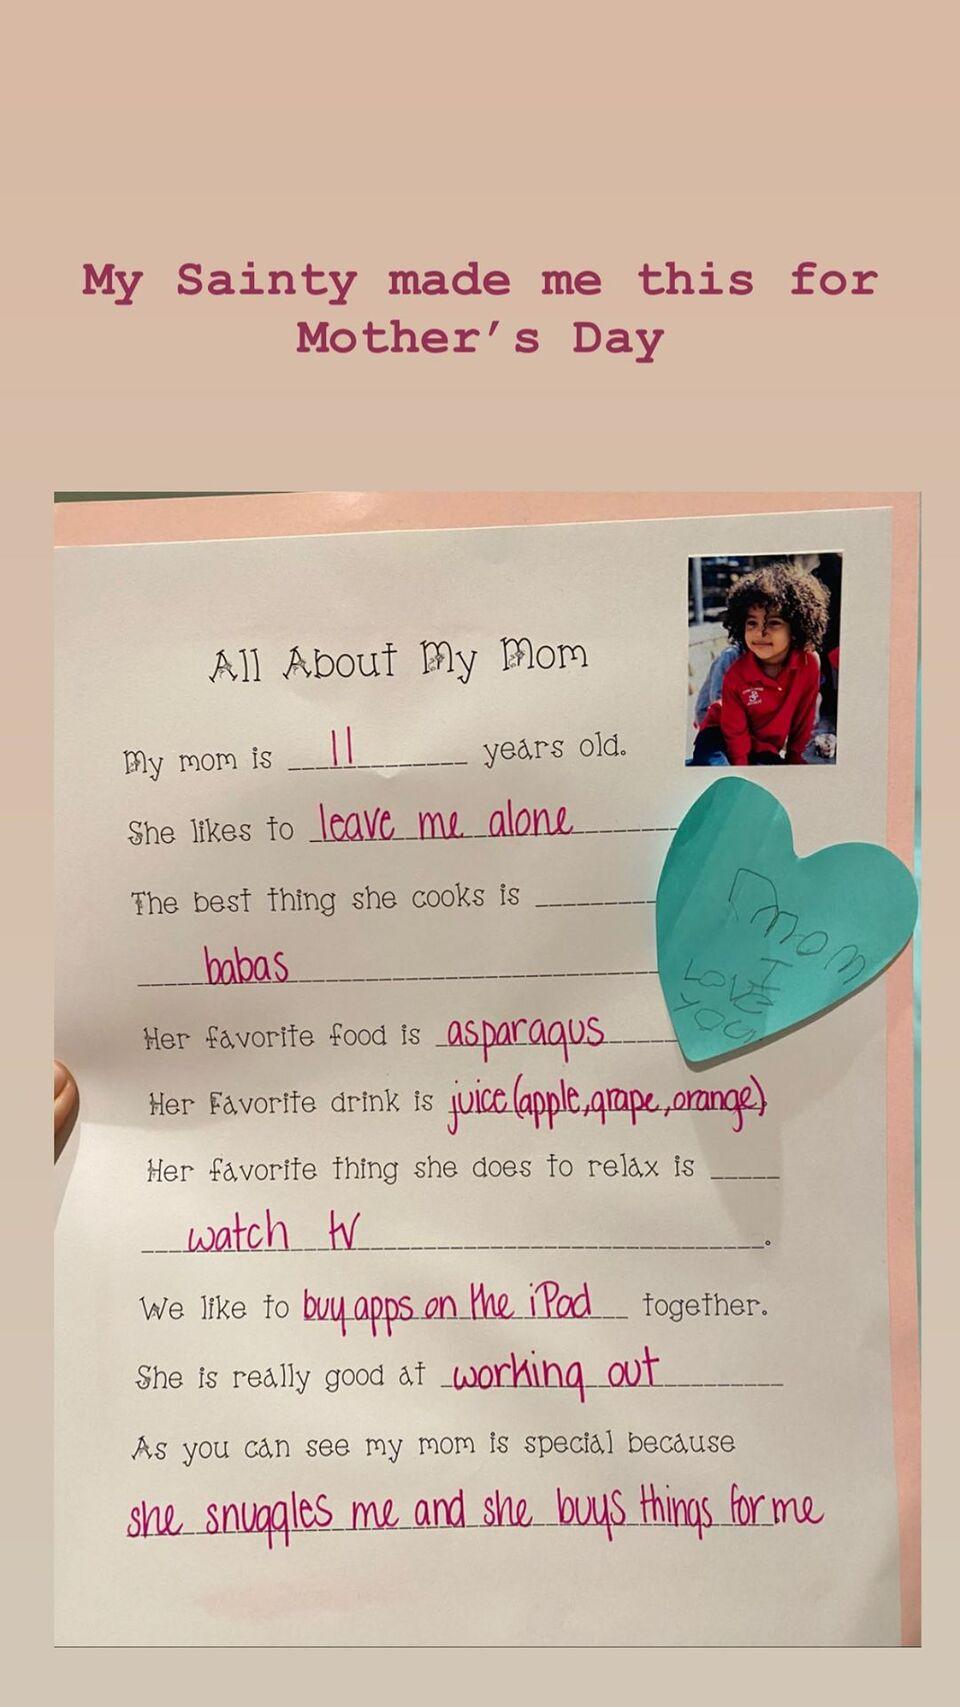 My Sainty made me this for
Mother's Day
All About My Mom
My mom is 11 years old.
She likes to leave me alone
The best thing she cooks is
babas
Her favorite food is asparagus
Her Favorite drink is juice (apple, grape, orange)
Her favorite thing she does to relax is
watch tv.
We like to buy apps on the iPad together.
She is really good at working out
As you can see my mom is special because
she snuggles me and she buys things for me
mom
I
LOVE
YOU